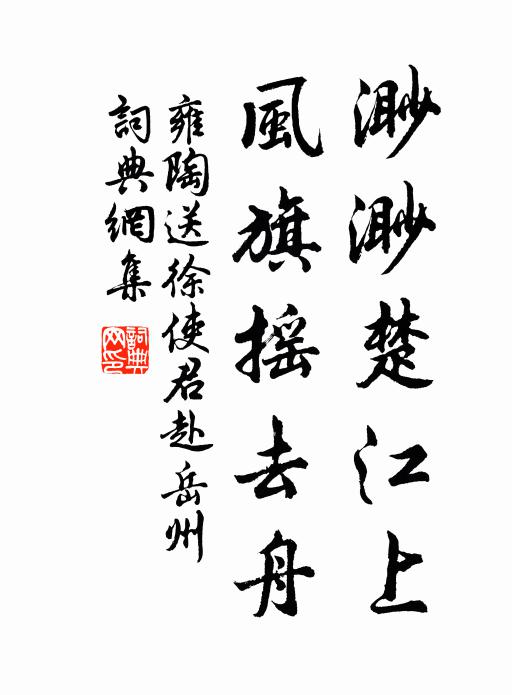 渺渺楚江上
風旗摇去舟
雍陶送徐使君赴岳州
詞典網集
詞典
网印